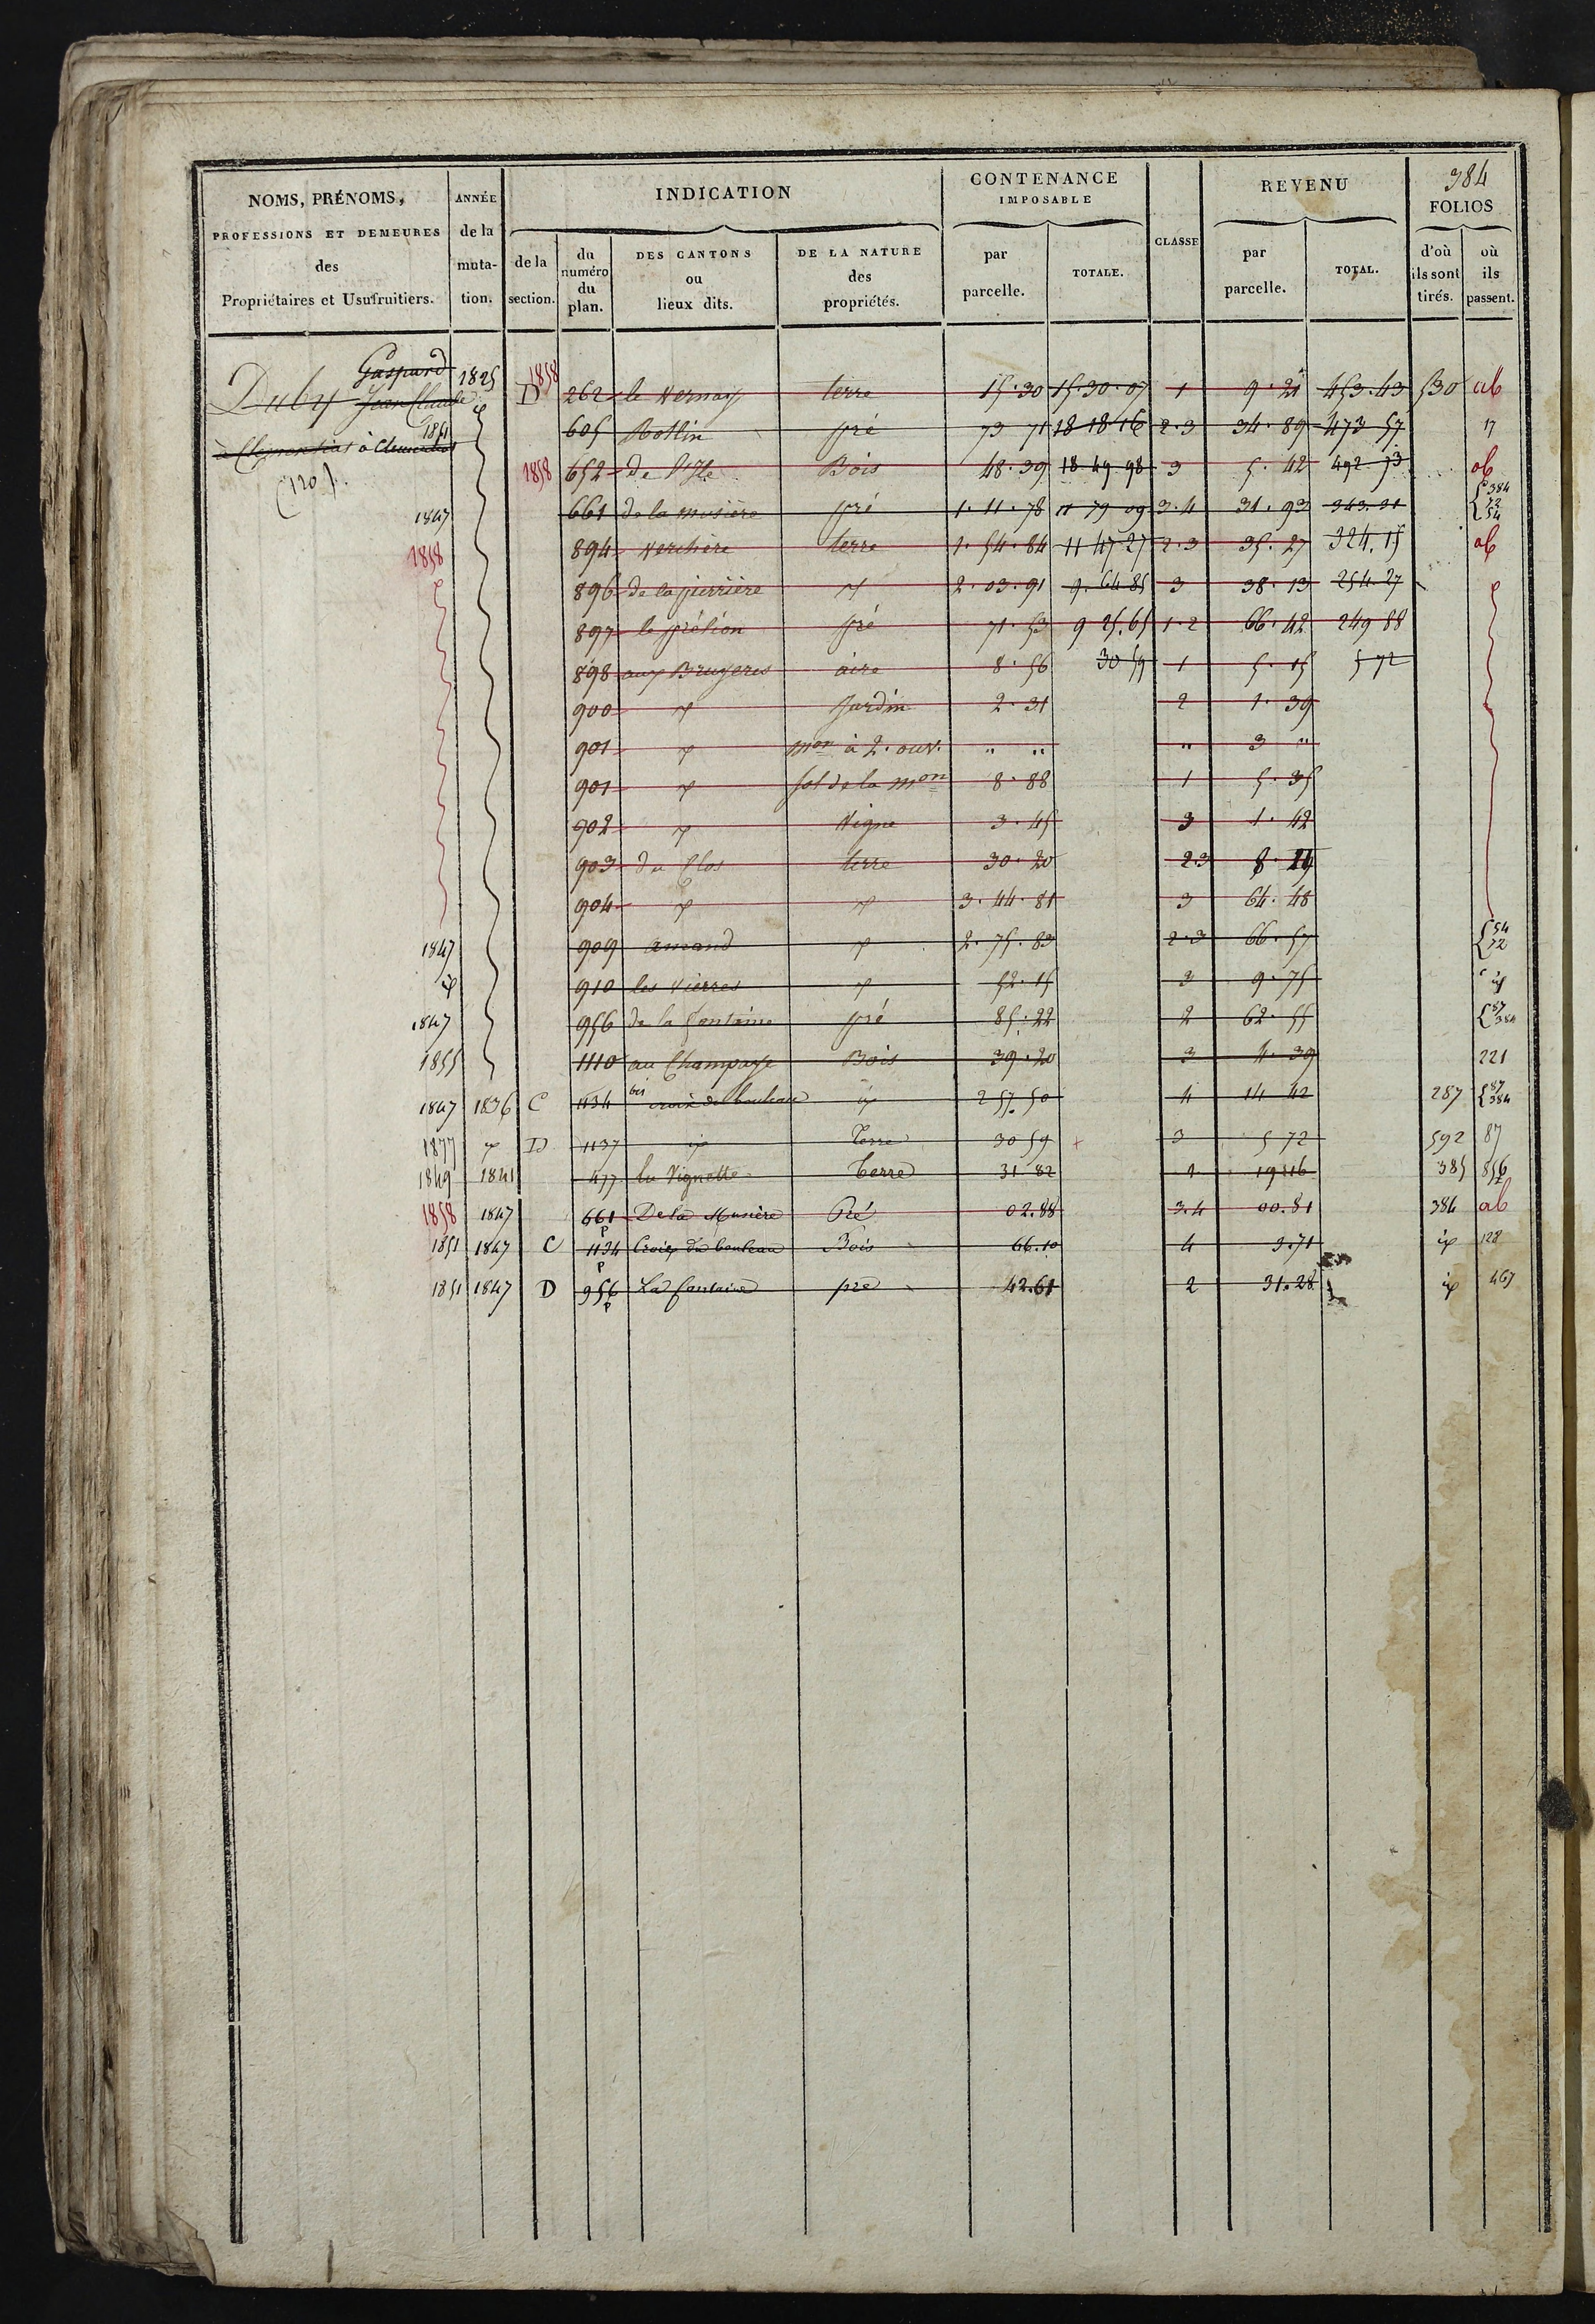 384
NOMS, PRÉNOMS, PROFESSIONS ET DEMEURES des Propriétaires et Usufruitiers.
ANNÉE de la muta- tion.
INDICATION
de la section.
du numéro du plan.
DES CANTONS ou lieux dits.
DE LA NATURE des propriétés.
CONTENANCE IMPOSABLE
par parcelle.
TOTALE.
CLASSE
REVENU
par parcelle.
TOTAL.
FOLIOS
d'où ils sont tirés.
où ils passent.
Gaspard
Duby Jean Claude 1825 1858 D 262 le Vernay terre 15.30 15.30.07 1 9.21 453.43 530 ab
1851 605 Rollin pré 73 71 18 18 16 2.3 34.89 473 57 17
(120). 1858 652 De l'Isle Bois 48.39 18 49 98 3 5.42 492 73 ab
1847 661 de la musière pré 1.11.78 11 79 09 3.4 31.93 343.01 384 72 54
1858 894 Verchère terre 1.54.84 11 47 27 2.3 35.27 324.15 ab
896 de la pierrière 2.03.91 9.64 85 3 38.13 254 27
897 pré 71.53 9 25.65 1.2 66.42 249 88
898 aux Bruyeres aire 8.56 30 59 1 5.15 5 72
900 Jardin 2.31 2 1.39
901 mon à 2. ouv. " " " 3 "
901 sol de la mon 8.88 1 5.35
902 Vigne 3.45 3 1.42
903 du Clos terre 30.20 2.3
904 3.44.81 3 64.48
1847 909 amand 2.75.83 2.3 66.57 54 72
910 les Vierres 52.15 3 9.75
1847 956 de la fontaine pré 85.22 2 62.55 87 384
1855 1110 au Champage Bois 39.20 3 4.39 221
1847 1836 C 1134 bis croix du bouleau 2 57.50 4 14 42 287 87 384
1877 D 1137 Terre 30 59 3 5 72 592 87
1849 1841 477 la Vignette terre 31 82 1 19 16 385 856
1858 1847 661 p De la Musière Pré 02.88 3.4 00.81 384 ab
1851 1847 C 1134 p Croix du bouleau Bois 66.10 4 3.71 128
1851 1847 D 956 p La fontaine pré 42.61 2 31.28 467